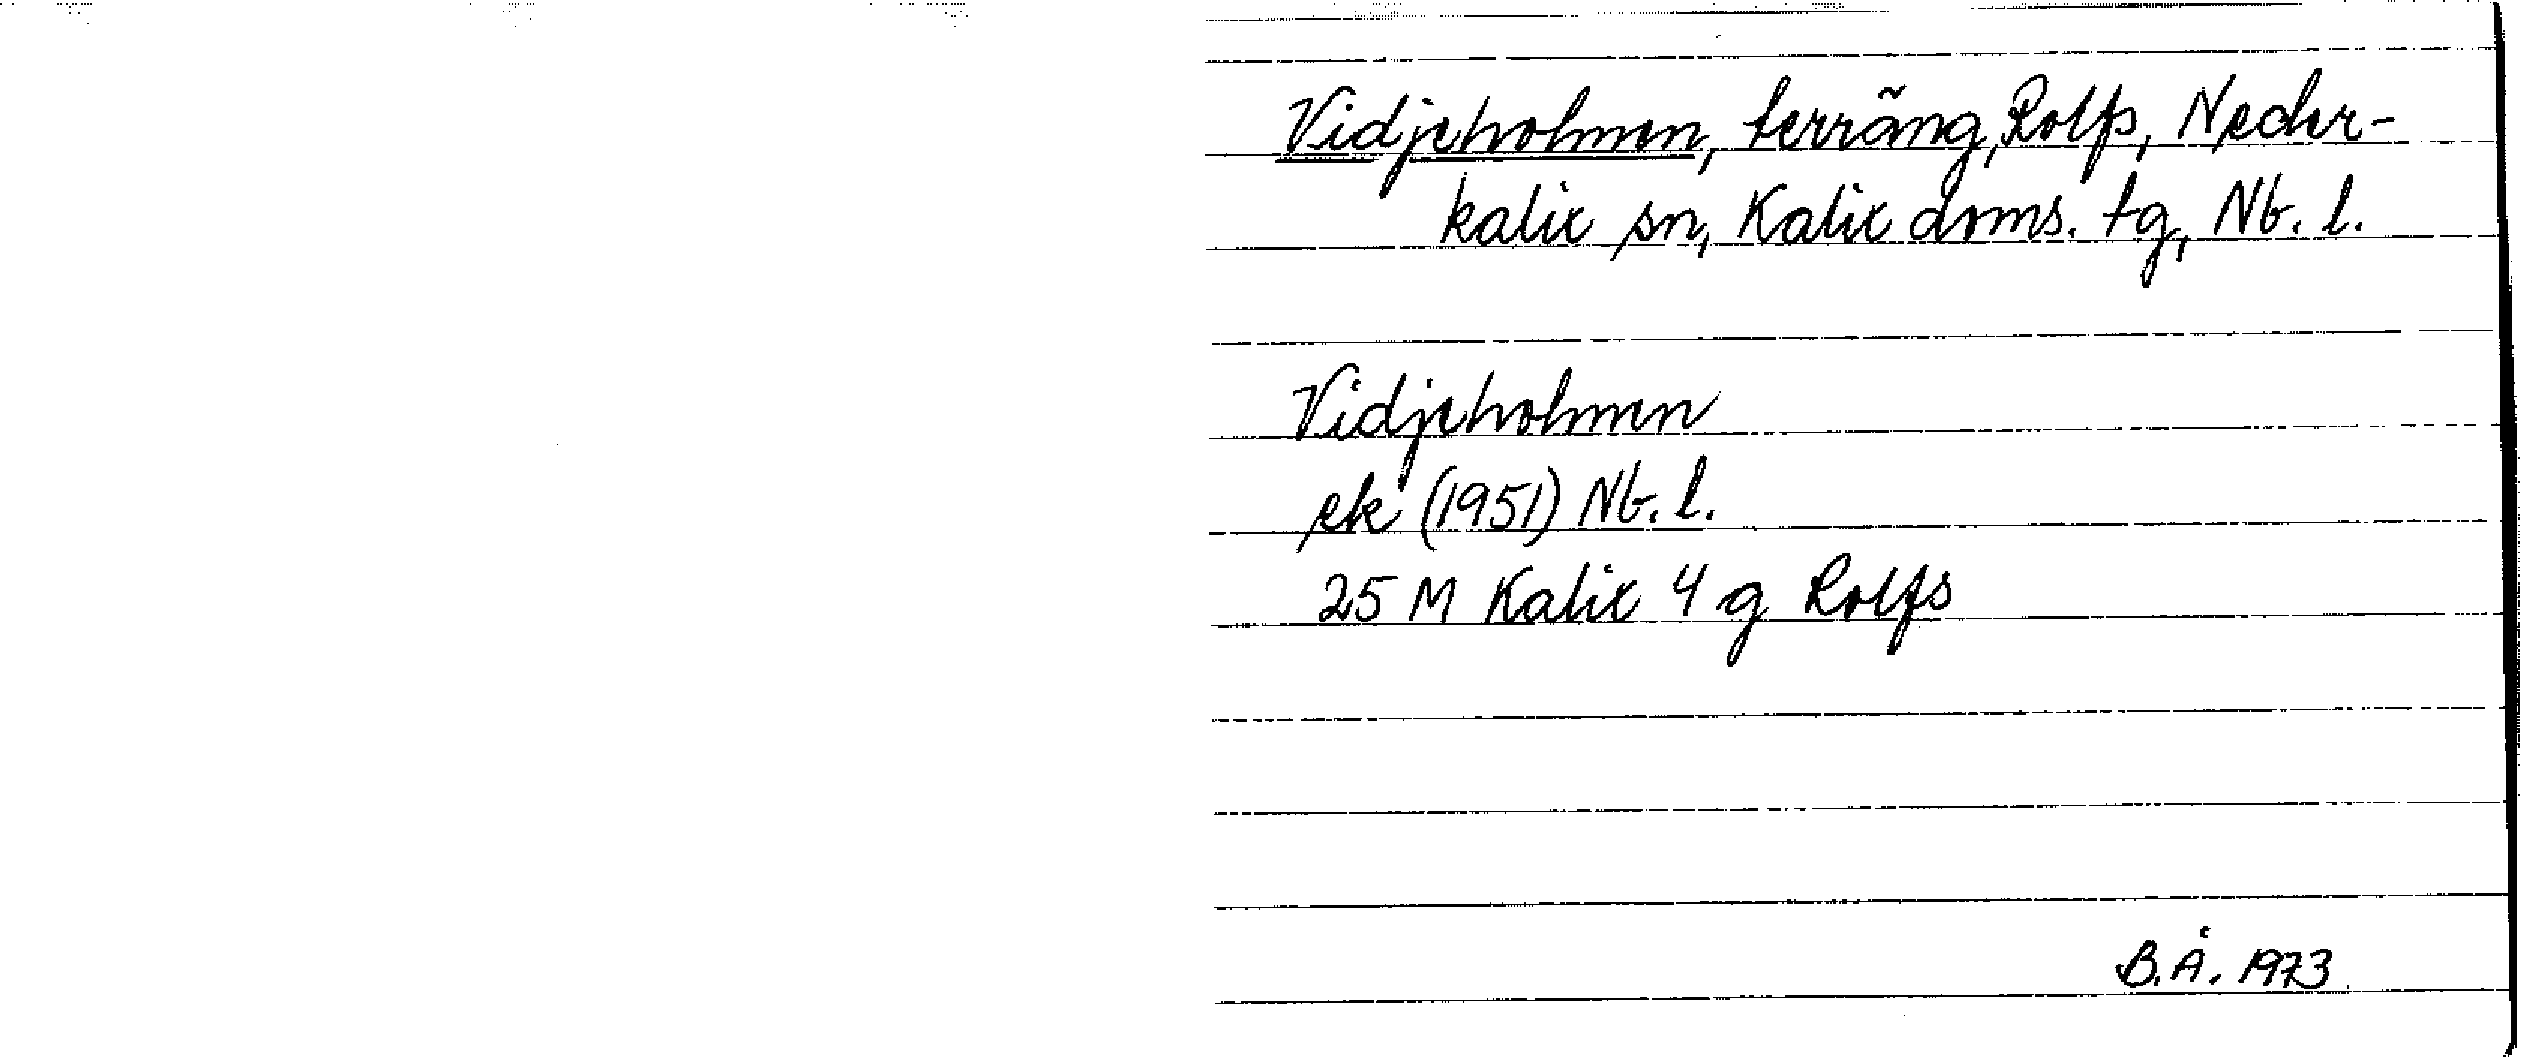 Vidjeholmen, terräng, Rolfs, Neder-
kalix sn, Kalix doms. tg, Nb. l.
Vidjeholmen
ek (1951) Nb. l.
25 M Kalix 4 g Rolfs
B.Å. 1973